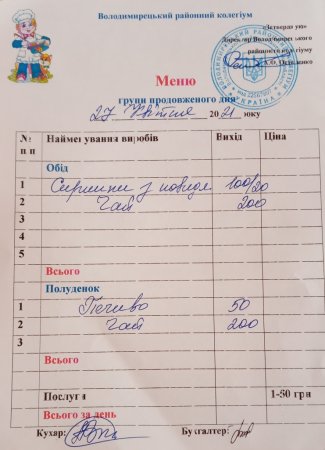 Володимирецький районний колегіум
«Затверджую»
Директор Володимирецького
районного колегіуму
Меню
групи продовженого дня
27 квітня 2021 року
№ п п Найменування виробів Вихід Ціна
Обід
1 Сирники з повидл 100/20
2 Чай 200
3
4
5
Всього
Полуденок
1 Печиво 50
2 Чай 200
3
Всього
Послуга 1-50 грн
Всього за день
Кухар: Бухгалтер: